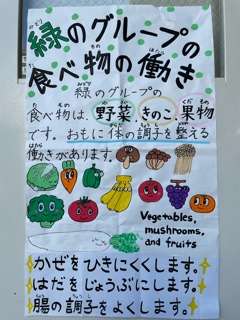 緑のグループの
食べ物の働き
緑のグループの
食べ物は、野菜、きのこ、果物
です。おもに体の調子を整える
働きがあります。
Vegetables,
mushrooms,
and fruits
かぜをひきにくくします。
はだをじょうぶにします。
腸の調子をよくします。